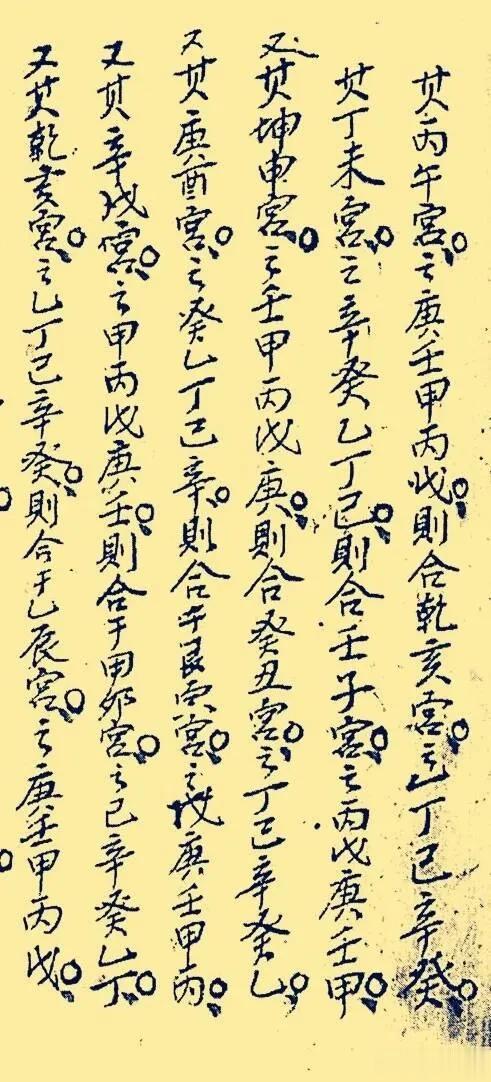 其丙午宮。之庚壬甲丙戊。則合乾亥宮。之乙丁己辛癸。
其丁未宮。之辛癸乙丁己。則合壬子宮。之丙戊庚壬甲。
又其坤申宮。之壬甲丙戊庚。則合癸丑宮。之丁己辛癸乙。
又其庚酉宮。之癸乙丁己辛。則合于艮寅宮。之戊庚壬甲丙。
又其辛戌宮。之甲丙戊庚壬。則合于甲卯宮。之己辛癸乙丁。
又其乾亥宮。之乙丁己辛癸。則合于乙辰宮。之庚壬甲丙戊。